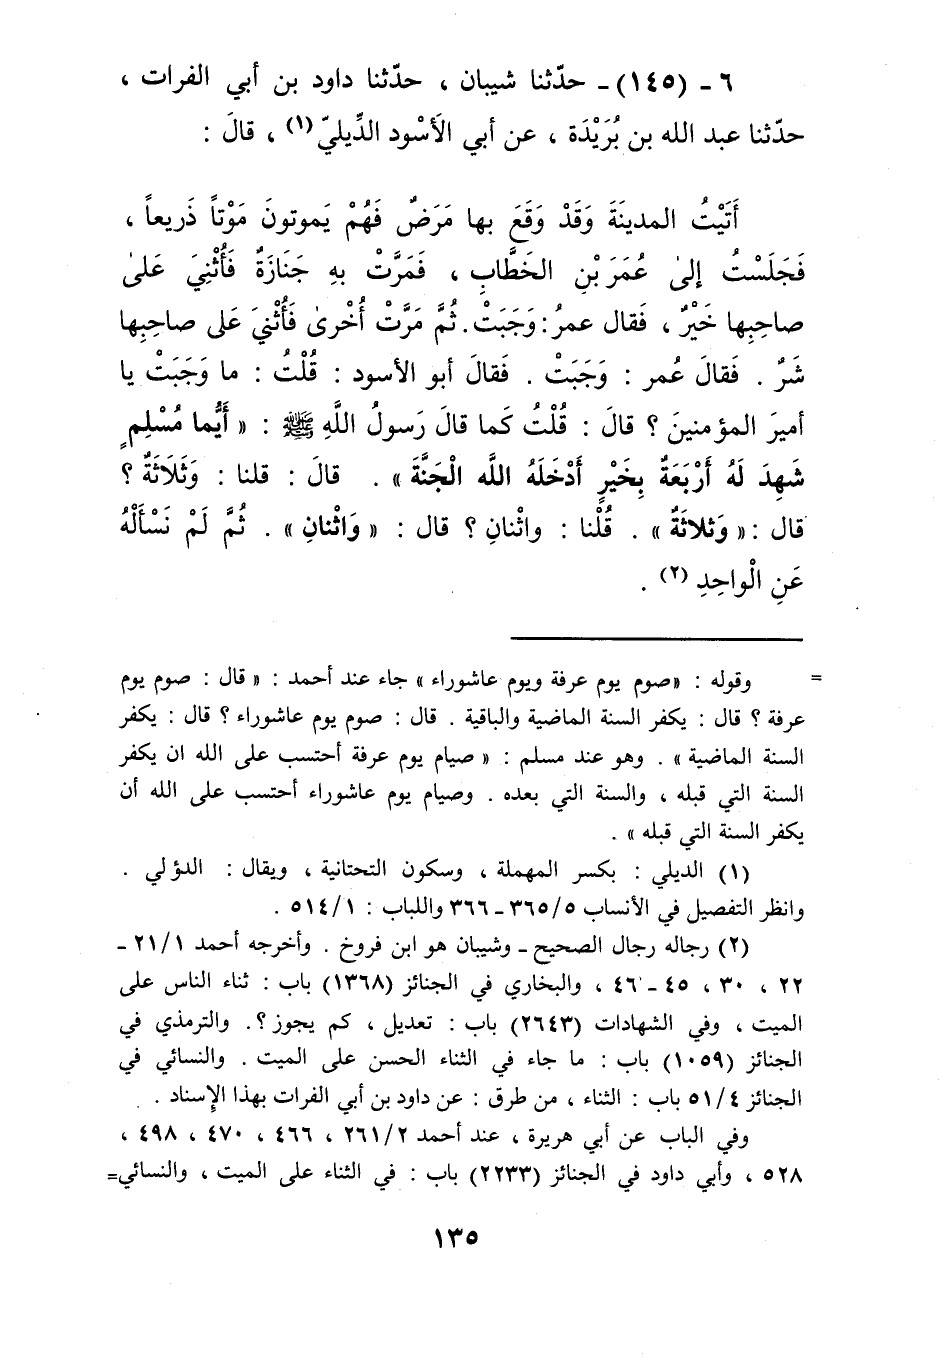 ٦ - (١٤٥) - حدّثنا شيبان ، حدّثنا داود بن أبي الفرات ،
حدثنا عبد الله بن بُرَيْدَة ، عن أبي الأَسْود الدِّيليّ(١) ، قالَ :
أَتَيْتُ المدينَةَ وَقَدْ وَقَعَ بها مَرَضٌ فَهُمْ يَموتونَ مَوْتاً ذَريعاً ،
فَجَلَسْتُ إلىٰ عُمَرَ بْنِ الخَطَّابِ ، فَمَرَّتْ بِهِ جَنَازَةٌ فَأُثْنِيَ عَلىٰ
صاحِبِها خَيْرٌ ، فَقال عمرُ : وَجَبَتْ . ثُمَّ مَرَّتْ أُخْرىٰ فَأُثْنيَ عَلى صاحِبِها
شَرٌ . فَقالَ عُمر : وَجَبَتْ . فَقالَ أبو الأسود : قُلْتُ : ما وَجَبَتْ يا
أميرَ المؤمنينَ ؟ قالَ : قُلْتُ كَما قالَ رَسولُ اللَّهِ ﷺ : « أَيُّما مُسْلِمٍ
شَهِدَ لَهُ أَرْبَعَةٌ بِخَيْرٍ أَدْخَلَهُ اللَّه الْجَنَّةَ » . قالَ : قلنا : وَثَلَاثَةٌ ؟
قال : « وَثلاثَةٌ » . قُلْنا : واثْنانِ ؟ قال : « وَاثْنانِ » . ثُمَّ لَمْ نَسْأَلْهُ
عَنِ الْواحِدِ (٢) .
= وقوله : «صوم يوم عرفة ويوم عاشوراء » جاء عند أحمد : « قال : صوم يوم
عرفة ؟ قال : يكفر السنة الماضية والباقية . قال : صوم يوم عاشوراء ؟ قال : يكفر
السنة الماضية » . وهو عند مسلم : « صيام يوم عرفة أحتسب على الله ان يكفر
السنة التي قبله ، والسنة التي بعده . وصيام يوم عاشوراء أحتسب على الله أن
يكفر السنة التي قبله » .
(١) الديلي : بكسر المهملة ، وسكون التحتانية ، ويقال : الدؤلي .
وانظر التفصيل في الأنساب ٣٦٥/٥ - ٣٦٦ واللباب : ٥١٤/١ .
(٢) رجاله رجال الصحيح - وشيبان هو ابن فروخ . وأخرجه أحمد ٢١/١ -
٢٢ ، ٣٠ ، ٤٥ - ٤٦ ، والبخاري في الجنائز (١٣٦٨) باب : ثناء الناس على
الميت ، وفي الشهادات (٢٦٤٣) باب : تعديل ، كم يجوز ؟ . والترمذي في
الجنائز (١٠٥٩) باب : ما جاء في الثناء الحسن على الميت . والنسائي في
الجنائز ٥١/٤ باب : الثناء ، من طرق : عن داود بن أبي الفرات بهذا الإسناد .
وفي الباب عن أبي هريرة ، عند أحمد ٢٦١/٢ ، ٤٦٦ ، ٤٧٠ ، ٤٩٨ ،
٥٢٨ ، وأبي داود في الجنائز (٢٢٣٣) باب : في الثناء على الميت ، والنسائي =
١٣٥